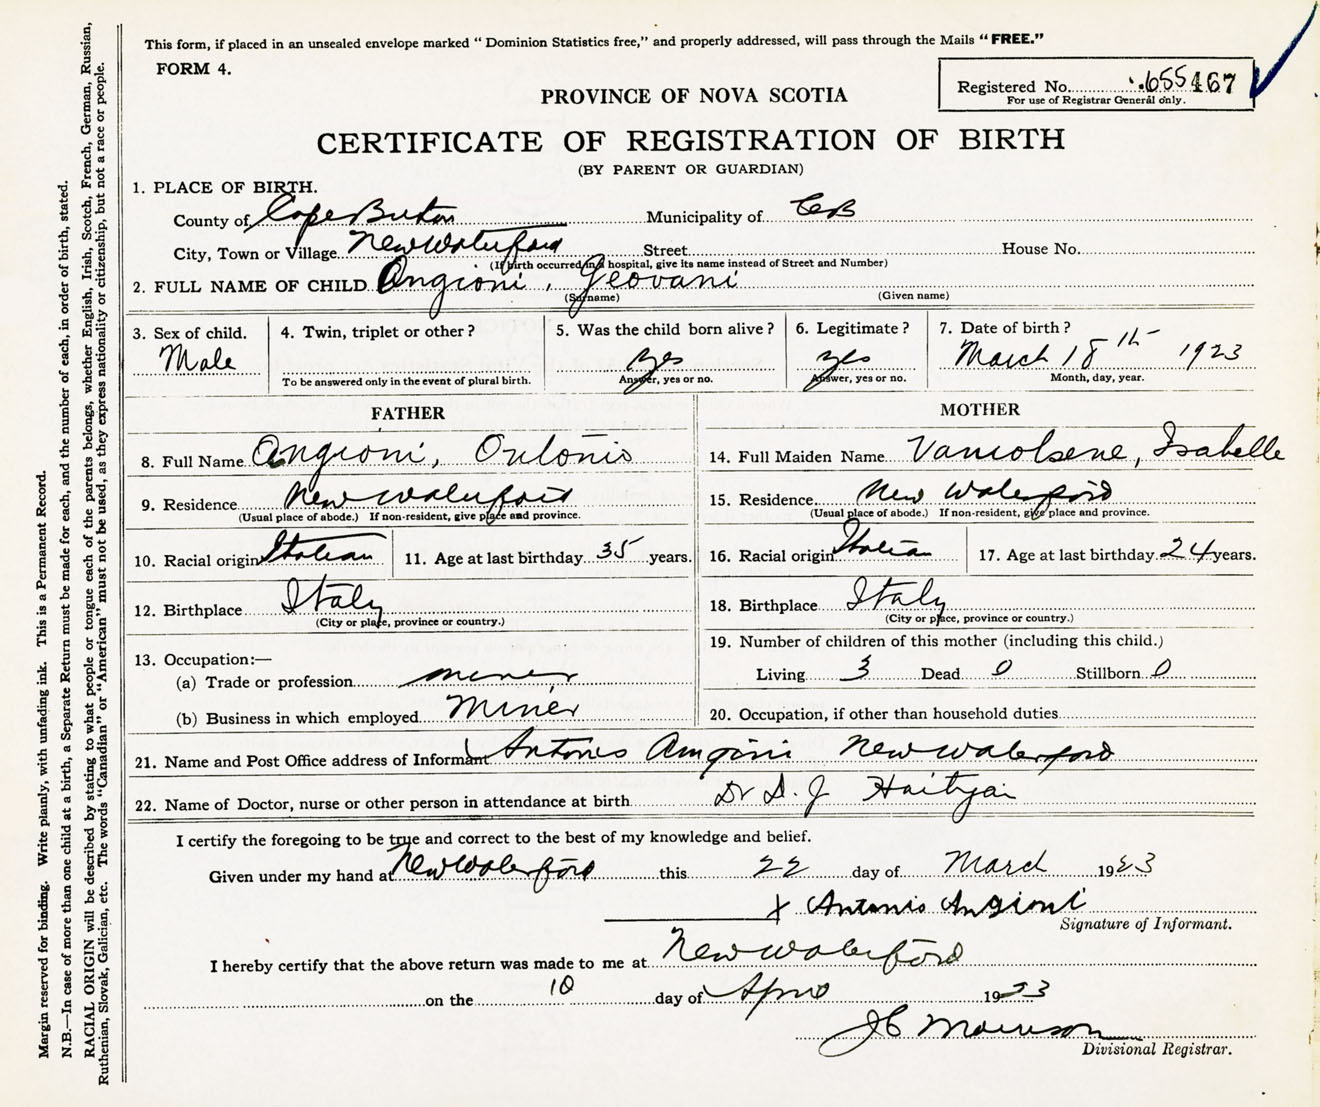 This form, if placed in an unsealed envelope marked “ Dominion Statistics free,” and properly addressed, will pass through the Mails “ FREE.”
FORM 4.
Registered No. 655467
For use of Registrar General only.
PROVINCE OF NOVA SCOTIA
CERTIFICATE OF REGISTRATION OF BIRTH
(BY PARENT OR GUARDIAN)
1. PLACE OF BIRTH.
County of Cape Breton Municipality of CB
City, Town or Village New Waterford Street House No.
(If birth occurred in a hospital, give its name instead of Street and Number)
2. FULL NAME OF CHILD Angioni, Geovani
(Surname) (Given name)
3. Sex of child. 4. Twin, triplet or other ? 5. Was the child born alive ? 6. Legitimate ? 7. Date of birth ?
Male yes yes March 18th 1923
To be answered only in the event of plural birth. Answer, yes or no. Answer, yes or no. Month, day, year.
FATHER
8. Full Name Angioni, Ontonio
9. Residence New Waterford
(Usual place of abode.) If non-resident, give place and province.
10. Racial origin Italian 11. Age at last birthday 35 years.
12. Birthplace Italy
(City or place, province or country.)
13. Occupation:—
(a) Trade or profession miner
(b) Business in which employed Miner
MOTHER
14. Full Maiden Name Isabelle
15. Residence New Waterford
(Usual place of abode.) If non-resident, give place and province.
16. Racial origin Italian 17. Age at last birthday 24 years.
18. Birthplace Italy
(City or place, province or country.)
19. Number of children of this mother (including this child.)
Living 3 Dead 0 Stillborn 0
20. Occupation, if other than household duties
21. Name and Post Office address of Informant Antonio Angioni New Waterford
22. Name of Doctor, nurse or other person in attendance at birth Dr D. J.
I certify the foregoing to be true and correct to the best of my knowledge and belief.
Given under my hand at New Waterford this 22 day of March 1923
X Antonio Angioni
Signature of Informant.
I hereby certify that the above return was made to me at New Waterford
on the 10 day of April 1923
J C Morrison
Divisional Registrar.
Margin reserved for binding. Write plainly, with unfading ink. This is a Permanent Record.
N.B.—In case of more than one child at a birth, a Separate Return must be made for each, and the number of each, in order of birth, stated.
RACIAL ORIGIN will be described by stating to what people or tongue each of the parents belongs, whether English, Irish, Scotch, French, German, Russian,
Ruthenian, Slovak, Galician, etc. The words “Canadian” or “American” must not be used, as they express nationality or citizenship, but not a race or people.